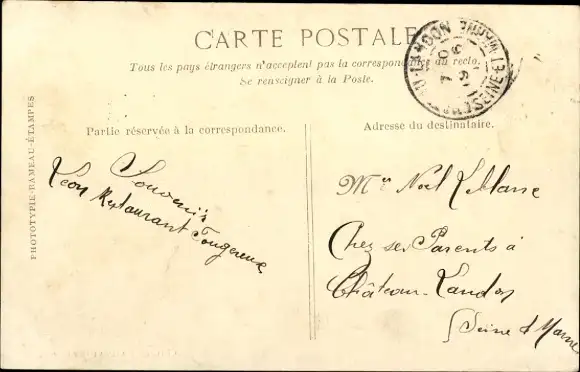 CARTE POSTALE
Tous les pays étrangers n'acceptent pas la correspondance au recto.
Se renseigner à la Poste.
Partie réservée à la correspondance.
Adresse du destinataire.
PHOTOTYPIE-RAMEAU-ÉTAMPES
Souvenir
Léon Restaurant Fougereux
Mr Noël Leblanc
Chez ses Parents à
Château-Landon
Seine & Marne